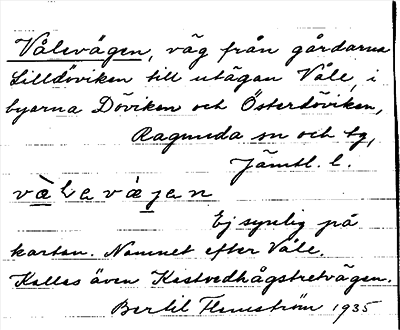 Vålevägen, väg från gårdarna
Lilldöviken till utägan Våle, i
byarna Döviken och Österdöviken,
Ragunda sn och tg,
Jämtl. l.
Ej synlig på
kartan. Namnet efter Våle.
Kallas även Kastvedhågstretvägen.
Bertil Flemström 1935